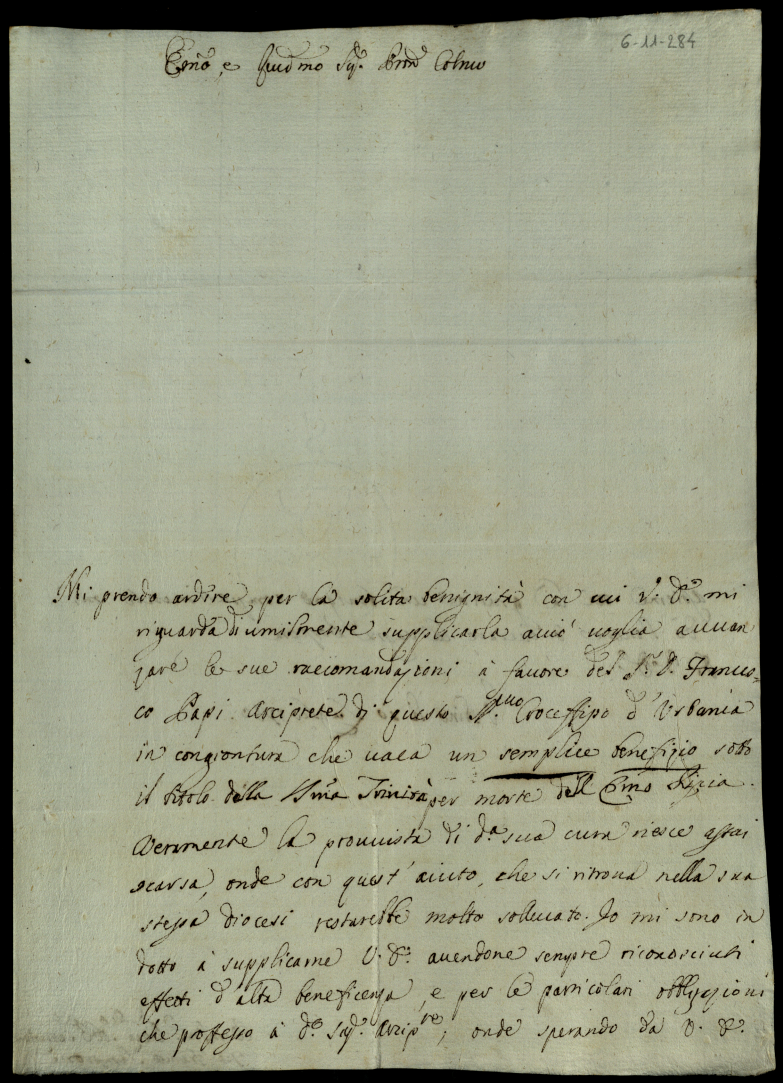 6-11-284
Emo, e Revdmo Sig.e Pron Colmo
Mi prendo ardire per la solita benignità con cui V. E. mi
riguarda di umilmente supplicarla acciò voglia auuan
zare le sue raccomandazioni à fauore del S.r D. Frances
co Papi Arciprete di questo SS.mo Crocefisso d'Urbania
in congiontura che uaca un semplice benefizio sotto
il titolo della SSma Trinità per morte dell Emo
Veramente la prouuista di d.a sua cura riesce assai
scarsa, onde con quest' aiuto, che si ritroua nella sua
stessa diocesi restarebbe molto solleuato. Io mi sono in
dotto à supplicarne V. E. auendone sempre riconosciuti
effetti d'alta beneficenza, e per le particolari obbligazioni
che professo à d.o Sig.r Arcip.te, onde sperando da V. E.